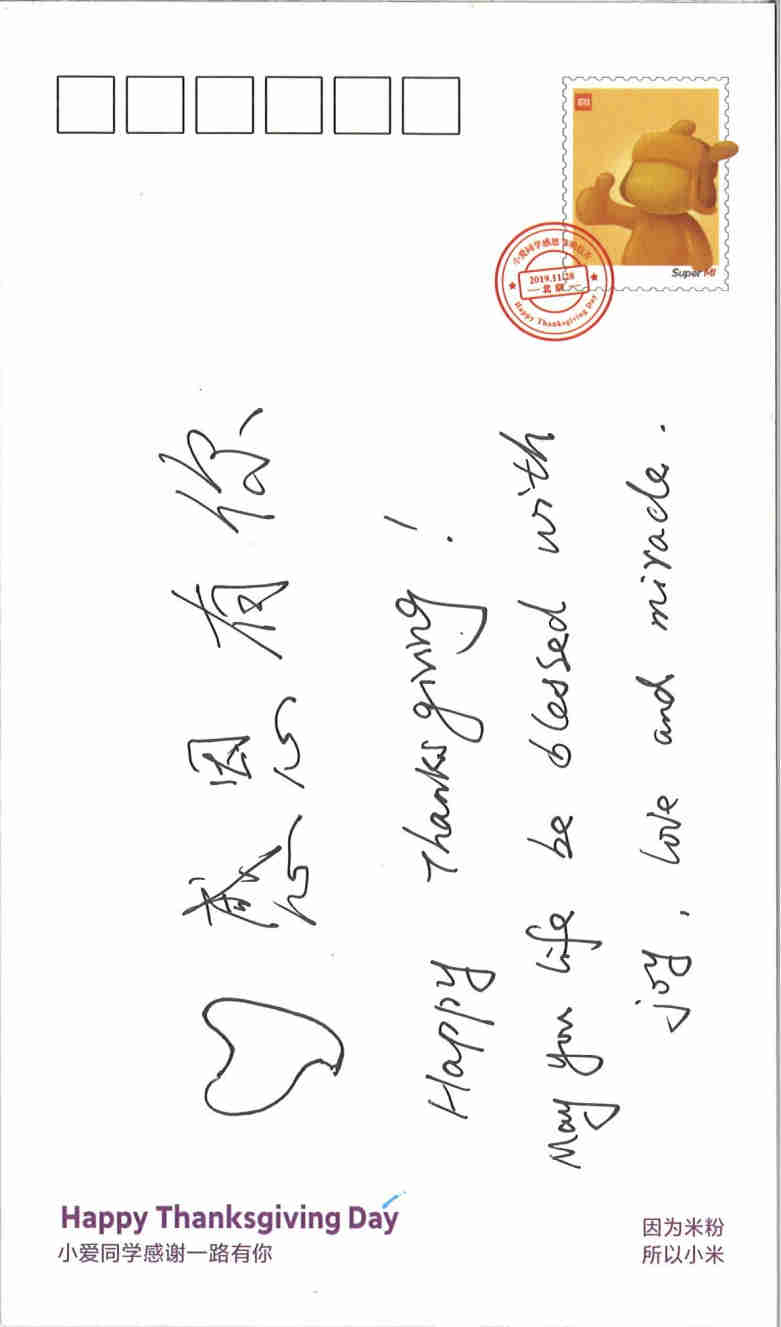 MI
Super MI
小爱同学感恩
2019.11.28
北京
Happy Thanksgiving Day
感恩有你
Happy Thanksgiving!
May you life be blessed with
joy, love and miracle.
Happy Thanksgiving Day
小爱同学感谢一路有你
因为米粉
所以小米